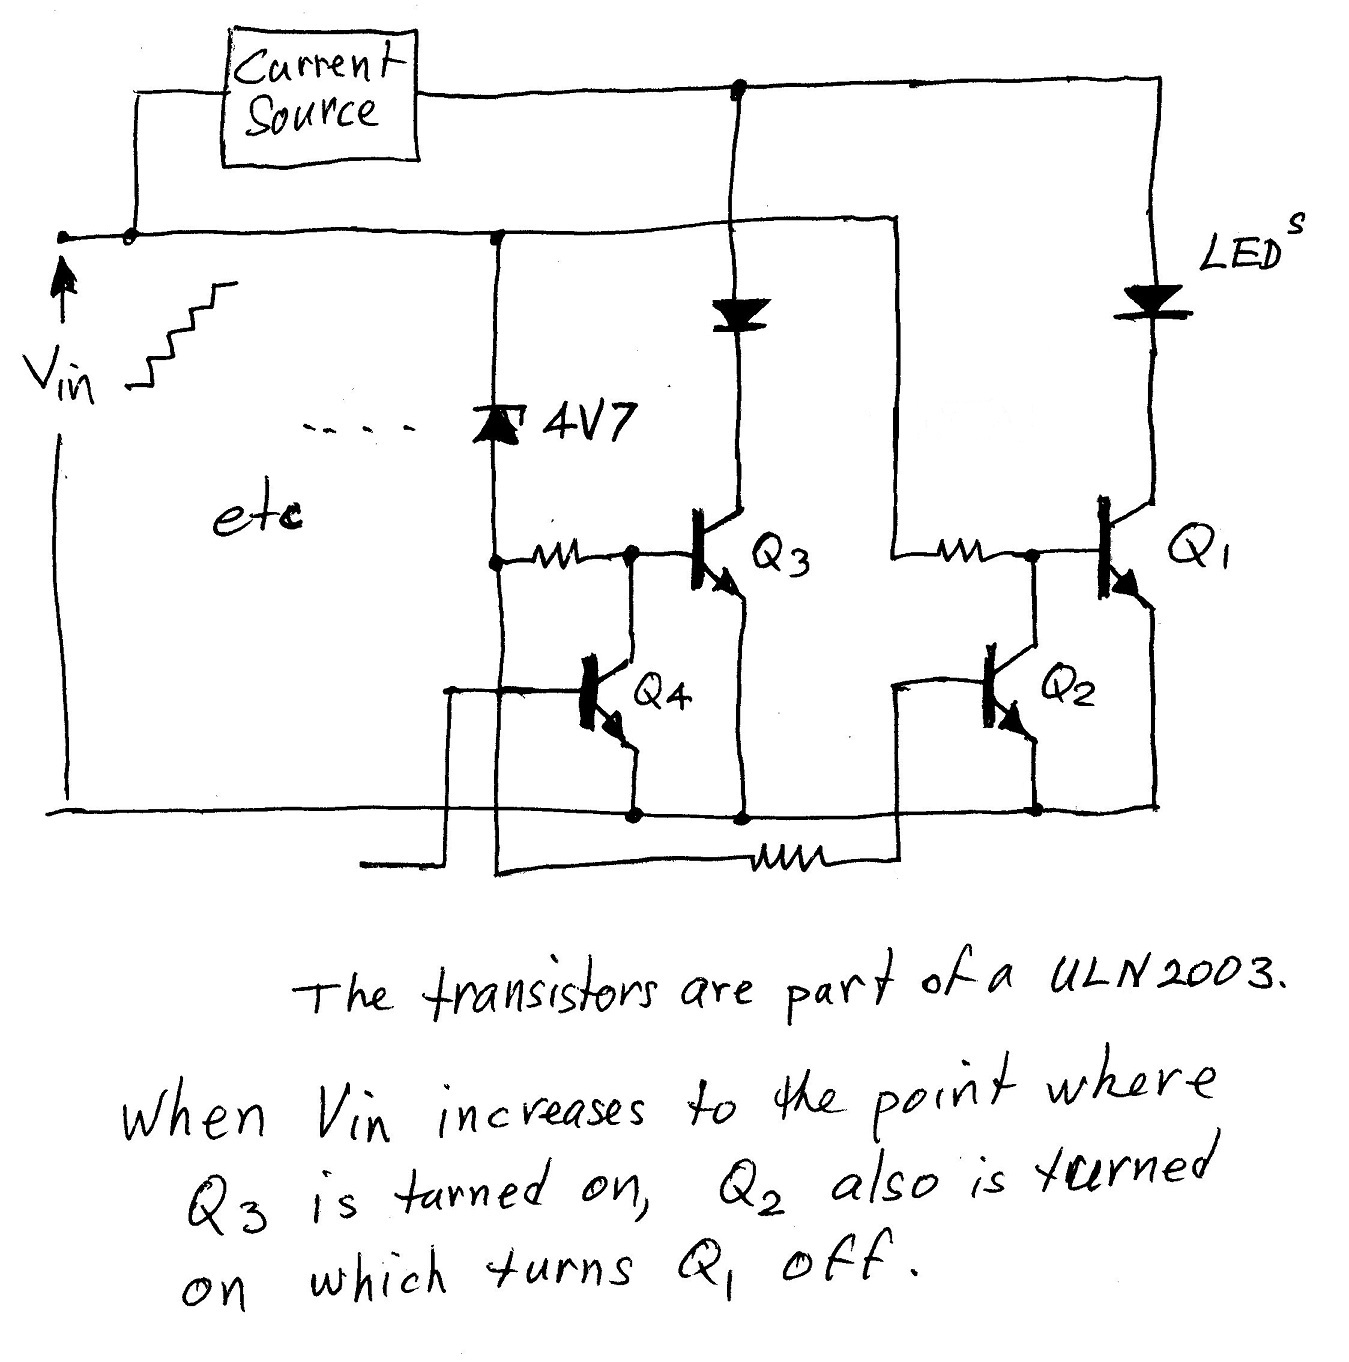 Current
Source
LEDs
Vin
4V7
etc
Q3
Q1
Q4
Q2
The transistors are part of a ULN2003.
When Vin increases to the point where
Q3 is turned on, Q2 also is turned
on which turns Q1 off.